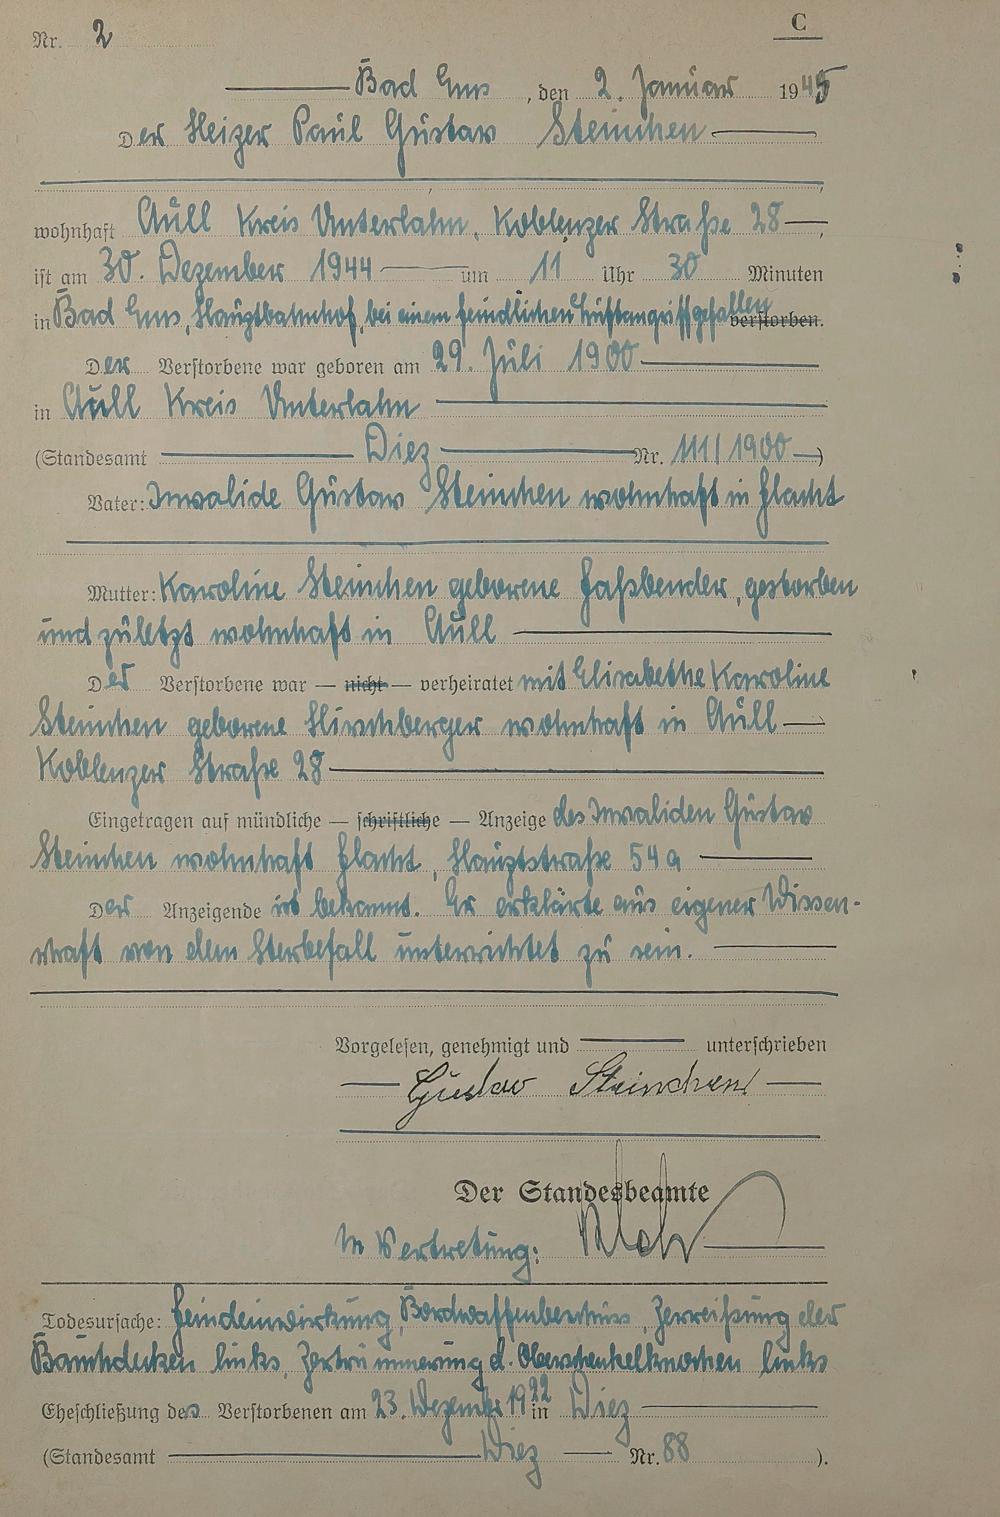 C
Nr. 2
Bad Ems, den 2. Januar 1945
Der Heizer Paul Gustav Steinchen
wohnhaft Aull Kreis Unterlahn, Koblenzer Straße 28,
ist am 30. Dezember 1944 um 11 Uhr 30 Minuten
in Bad Ems, Hauptbahnhof, bei einem feindlichen Luftangriff gefallen verstorben.
Der Verstorbene war geboren am 29. Juli 1900
in Aull Kreis Unterlahn
(Standesamt Diez Nr. 111/1900)
Vater: Invalide Gustav Steinchen wohnhaft in Flacht
Mutter: Karoline Steinchen geborene Faßbender, gestorben
und zuletzt wohnhaft in Aull
Der Verstorbene war — nicht — verheiratet mit Elisabethe Karoline
Steinchen geborene Hirschberger wohnhaft in Aull
Koblenzer Straße 28
Eingetragen auf mündliche — schriftliche — Anzeige des Invaliden Gustav
Steinchen wohnhaft Flacht, Hauptstraße 54a
Der Anzeigende ist bekannt. Er erklärte aus eigener Wissen-
schaft von dem Sterbefall unterrichtet zu sein.
Vorgelesen, genehmigt und unterschrieben
Gustav Steinchen
Der Standesbeamte
In Vertretung:
Todesursache: Feindeinwirkung, Bordwaffenbeschuss, Zerreißung der
Bauchdecken links, Zertrümmerung d. Oberschenkelknochen links
Eheschließung des Verstorbenen am 23. Dezember 1922 in Diez
(Standesamt Diez Nr. 88).